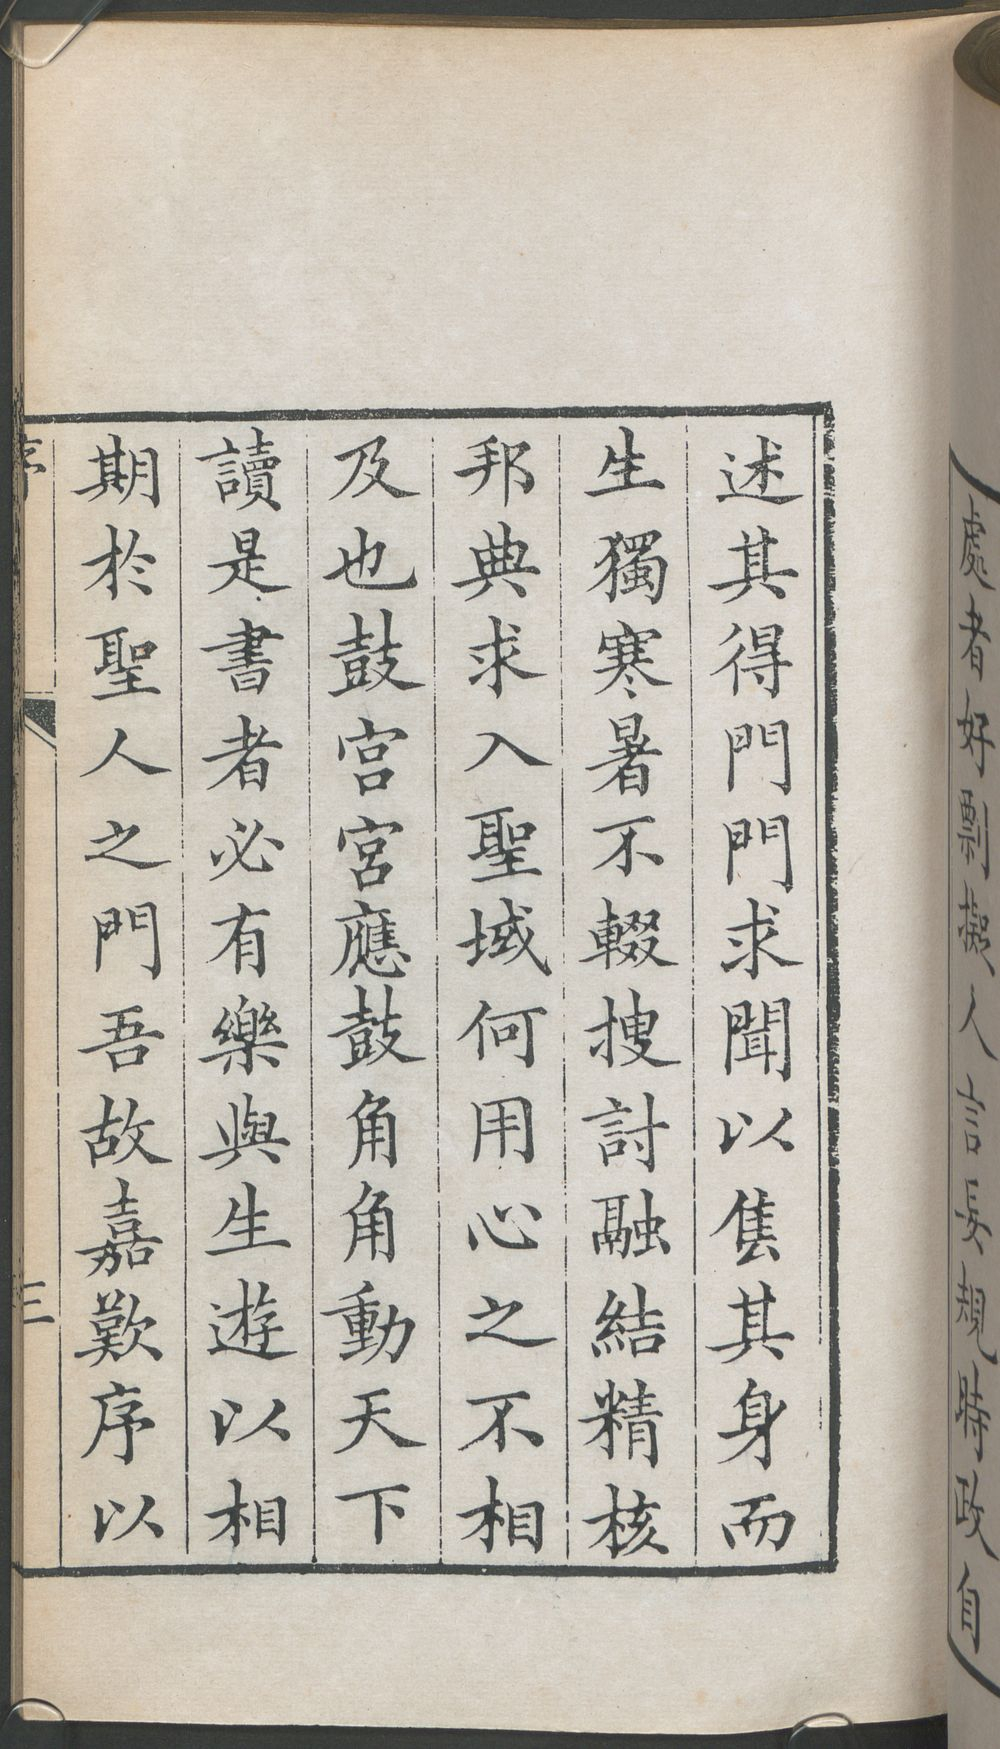 處者好剽擬人言妄規時政自
述其得門門求聞以售其身而
生獨寒暑不輟搜討融結精核
邦典求入聖域何用心之不相
及也鼓宮宮應鼓角角動天下
讀是書者必有樂與生遊以相
期於聖人之門吾故嘉歎序以
序
三